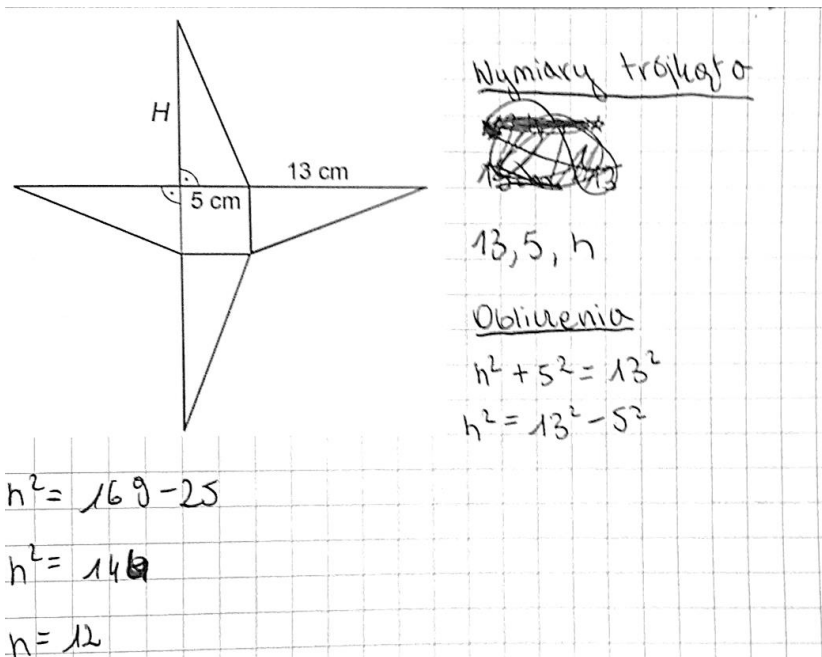 H
13 cm
5 cm
Wymiary trójkąta
13, 5, h
Obliczenia
h² + 5² = 13²
h² = 13² - 5²
h² = 169 - 25
h² = 144
h = 12